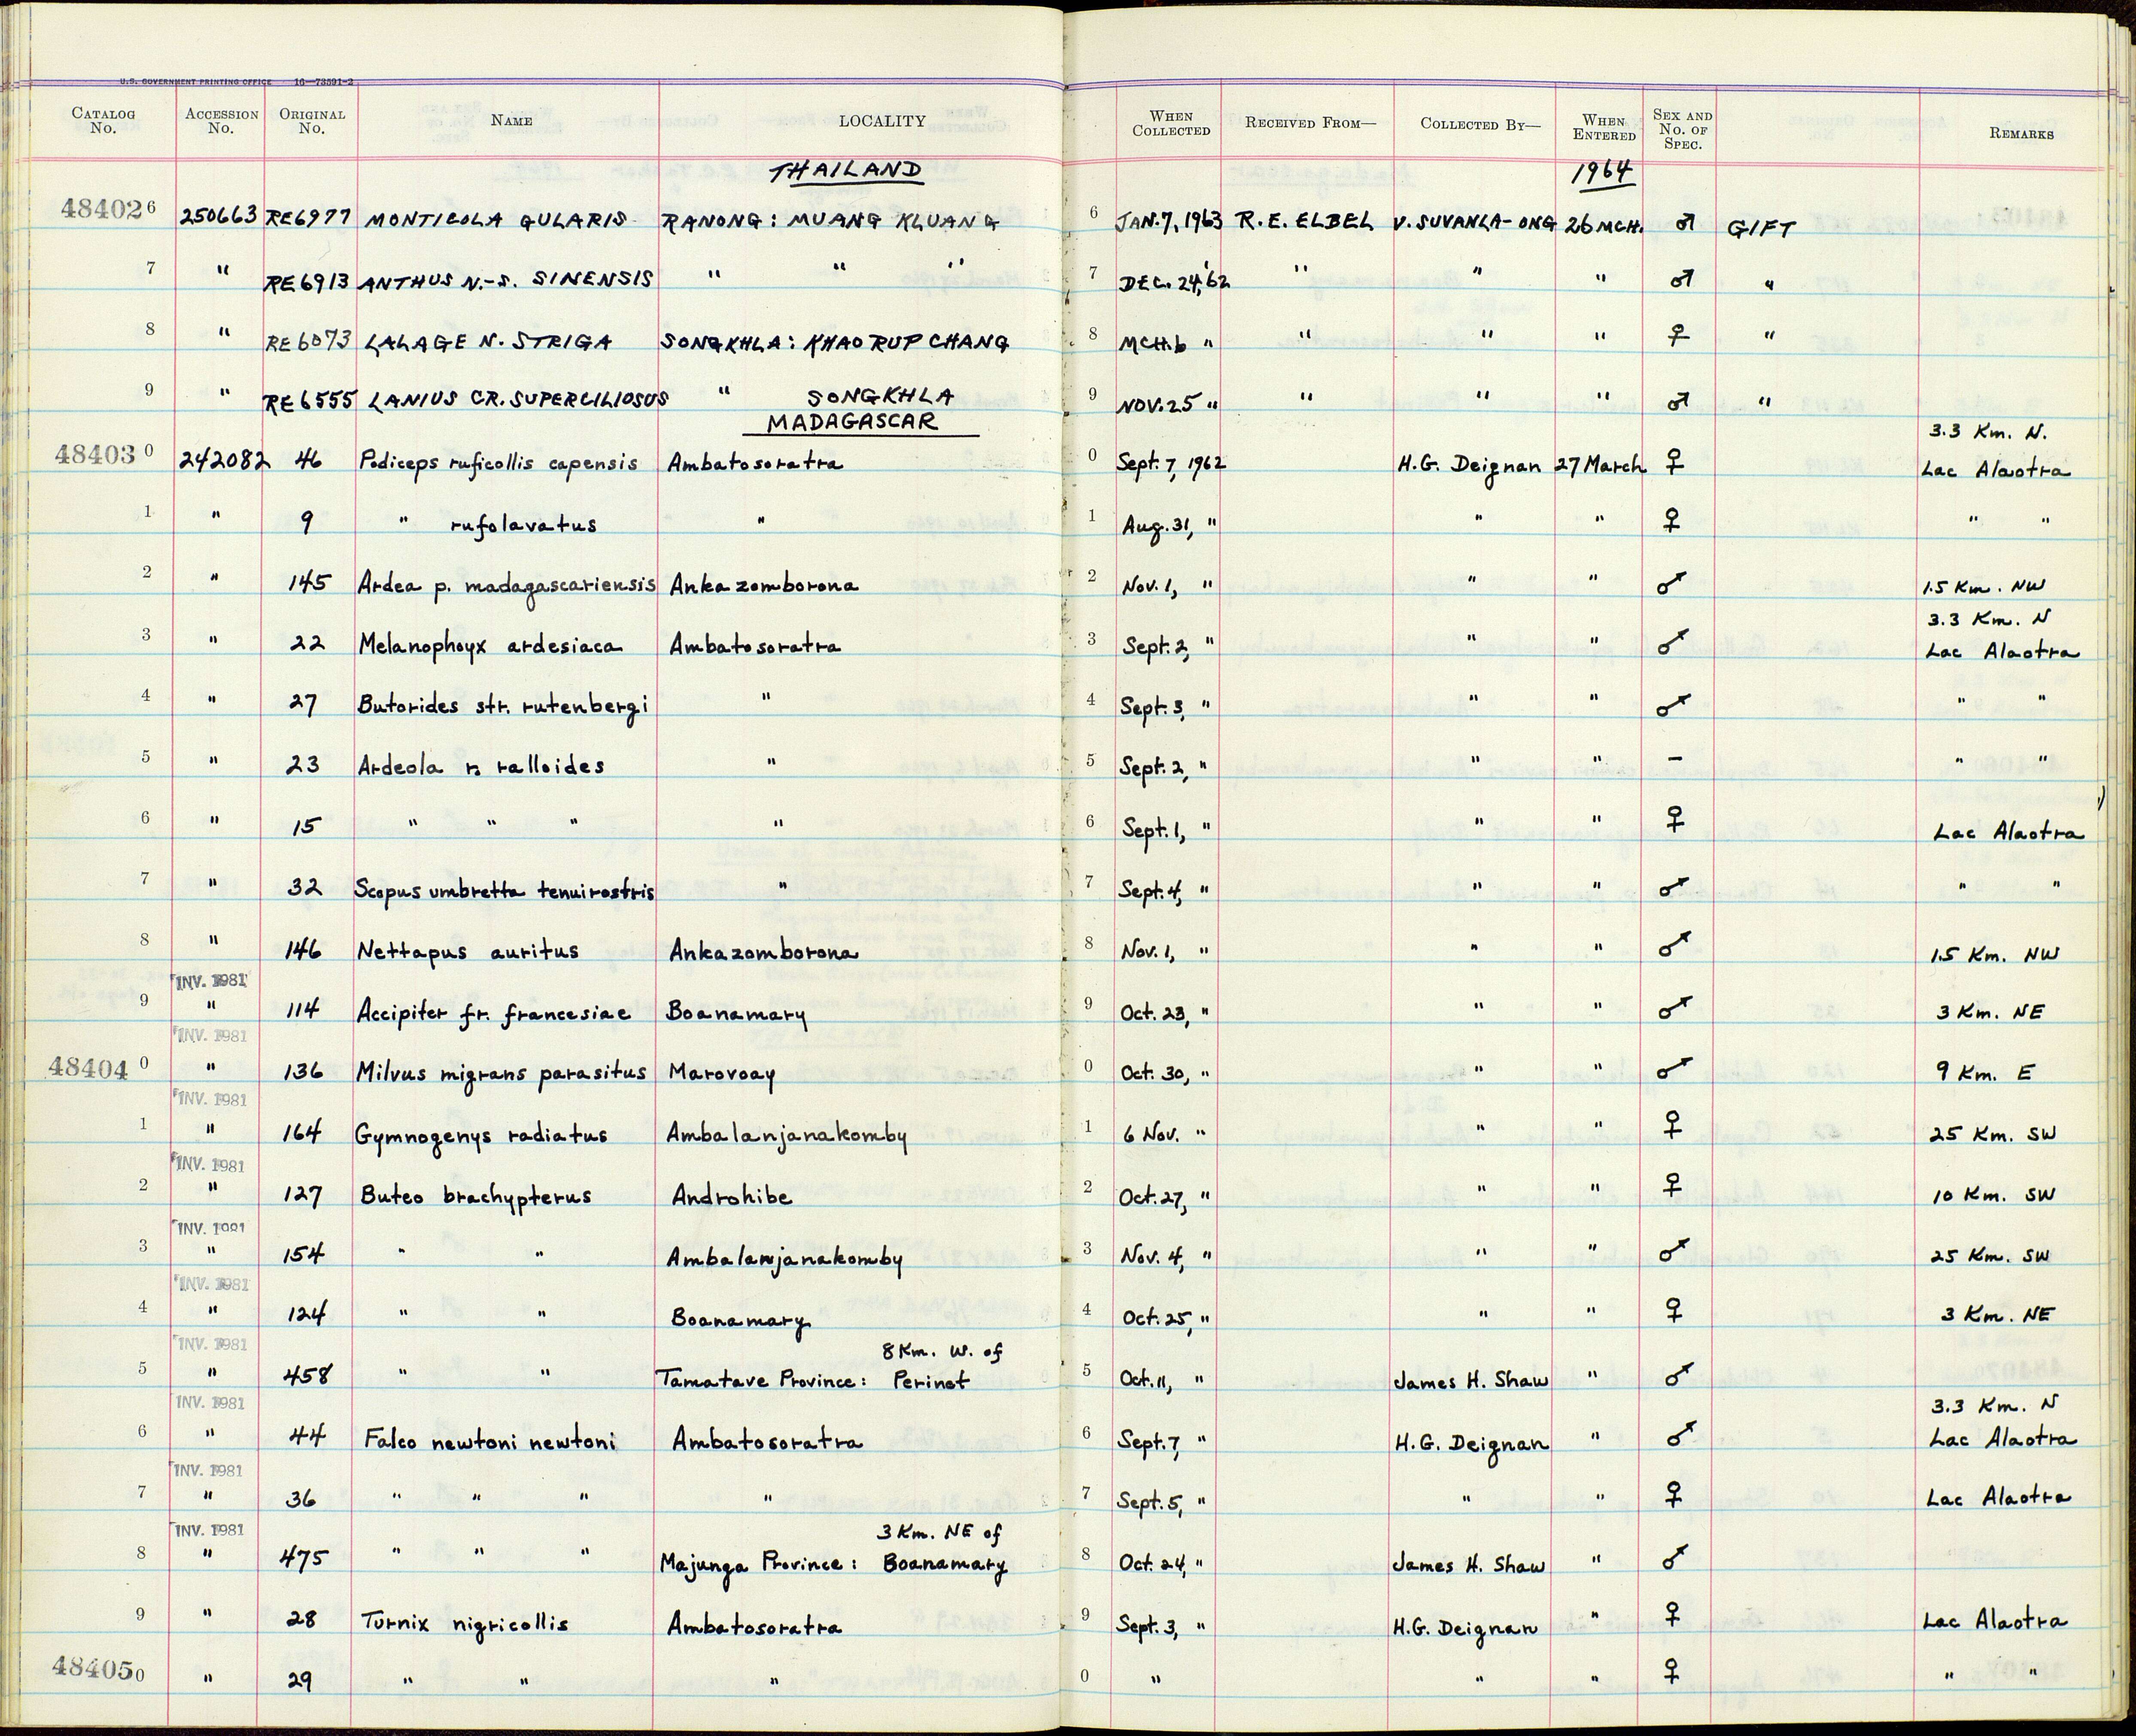 U.S. GOVERNMENT PRINTING OFFICE 16—73591-2
CATALOG No. ACCESSION No. ORIGINAL No. NAME LOCALITY WHEN COLLECTED RECEIVED FROM— COLLECTED BY— WHEN ENTERED SEX AND No. OF SPEC. REMARKS
THAILAND 1964
484026 250663 RE6977 MONTICOLA GULARIS RANONG: MUANG KLUANG 6 JAN. 7, 1963 R. E. ELBEL V. SUVANLA-ONG 26 MCH. ♂ GIFT
7 " RE6913 ANTHUS N.-S. SINENSIS " " " 7 DEC. 24,'62 " " " ♂ "
8 " RE6073 LALAGE N. STRIGA SONGKHLA: KHAO RUP CHANG 8 MCH. 6 " " " " ♀ "
9 " RE6555 LANIUS CR. SUPERCILIOSUS " SONGKHLA 9 NOV. 25 " " " " ♂ "
MADAGASCAR
3.3 Km. N.
484030 242082 46 Podiceps ruficollis capensis Ambatosoratra 0 Sept. 7, 1962 H.G. Deignan 27 March ♀ Lac Alaotra
1 " 9 " rufolavatus " 1 Aug. 31, " " " ♀ " "
2 " 145 Ardea p. madagascariensis Ankazomborona 2 Nov. 1, " " " ♂ 1.5 Km. NW
3.3 Km. N
3 " 22 Melanophoyx ardesiaca Ambatosoratra 3 Sept. 2, " " " ♂ Lac Alaotra
4 " 27 Butorides str. rutenbergi " 4 Sept. 3, " " " ♂ " "
5 " 23 Ardeola r. ralloides " 5 Sept. 2, " " " – " "
6 " 15 " " " " 6 Sept. 1, " " " ♀ Lac Alaotra
7 " 32 Scopus umbretta tenuirostris " 7 Sept. 4, " " " ♂ " "
8 " 146 Nettapus auritus Ankazomborona 8 Nov. 1, " " " ♂ 1.5 Km. NW
INV. 1981
9 " 114 Accipiter fr. francesiae Boanamary 9 Oct. 23, " " " ♂ 3 Km. NE
INV. 1981
484040 " 136 Milvus migrans parasitus Marovoay 0 Oct. 30, " " " ♂ 9 Km. E
INV. 1981
1 " 164 Gymnogenys radiatus Ambalanjanakomby 1 6 Nov. " " " ♀ 25 Km. SW
INV. 1981
2 " 127 Buteo brachypterus Androhibe 2 Oct. 27, " " " ♀ 10 Km. SW
INV. 1981
3 " 154 " " Ambalanjanakomby 3 Nov. 4, " " " ♂ 25 Km. SW
INV. 1981
4 " 124 " " Boanamary 4 Oct. 25, " " " ♀ 3 Km. NE
INV. 1981 8 Km. W. of
5 " 458 " " Tamatave Province: Perinet 5 Oct. 11, " James H. Shaw " ♂
INV. 1981 3.3 Km. N
6 " 44 Falco newtoni newtoni Ambatosoratra 6 Sept. 7, " H.G. Deignan " ♂ Lac Alaotra
INV. 1981
7 " 36 " " " " 7 Sept. 5, " " " ♀ Lac Alaotra
INV. 1981 3 Km. NE of
8 " 475 " " " Majunga Province: Boanamary 8 Oct. 24, " James H. Shaw " ♂
9 " 28 Turnix nigricollis Ambatosoratra 9 Sept. 3, " H.G. Deignan " ♀ Lac Alaotra
484050 " 29 " " " 0 " " " ♀ " "